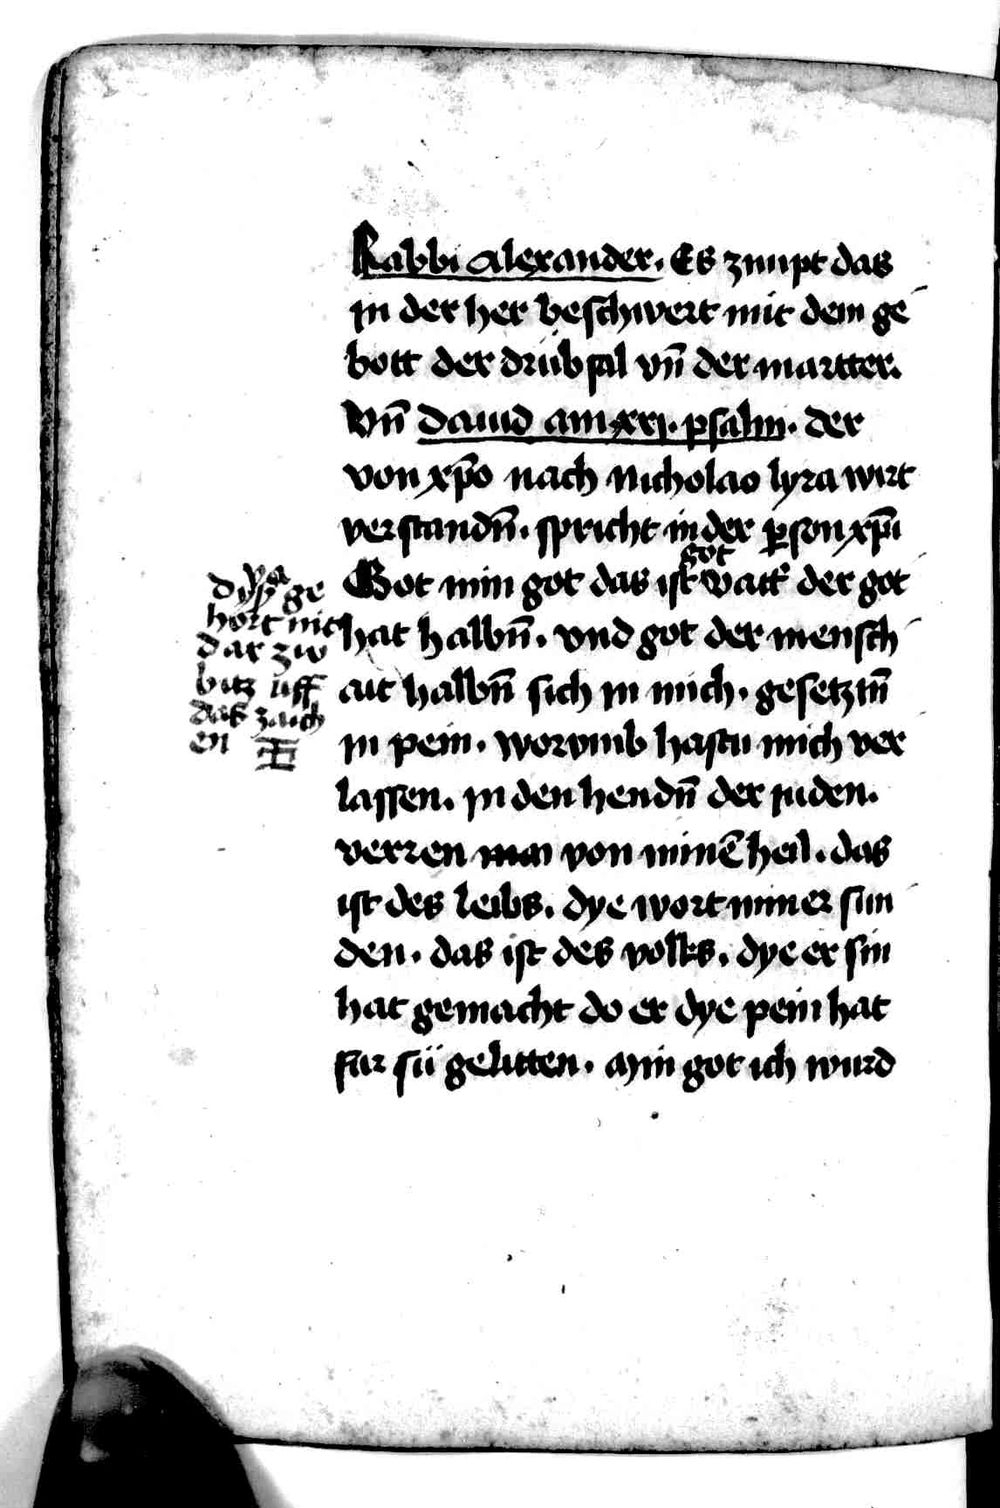 Rabbi Alexander. Es zimpt das
in der her beschwert mit dem ge
bott der drübsal vn̄ der martter.
Vn̄ Dauid am xxj. psalm. der
von xp̄o nach Nicholao lyra wirt
verstandn̄. spricht in der p̱son xp̄i
Got min got das ist got vatt' der got
hat halbn̄. vnd got der mensch
ait halbn̄ sich in mich. gesetztn̄
in pein. worvmb hastu mich ver
lassen. in den hendn̄ der juden.
verren von minē heil. das
ist des leibs. dye wort miner sün
den. das ist des volks. dye er sin
hat gemacht do er dye pein hat
für sü gelitten. Min got ich wurd
ge
hört nit
dar zw
bitz uff
das zaich
en